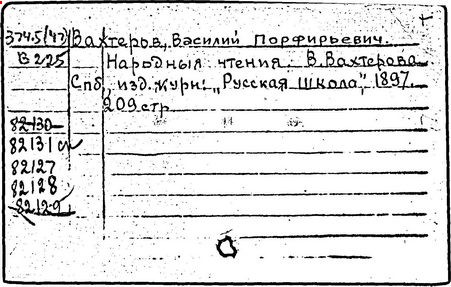 374.5(47) Вахтеров, Василий Порфирьевич.
В 225 Народныя чтения. В. Вахтерова
Спб, изд. журн. „Русская Школа", 1897.
209 стр
82130
82131
82127
82128
82129